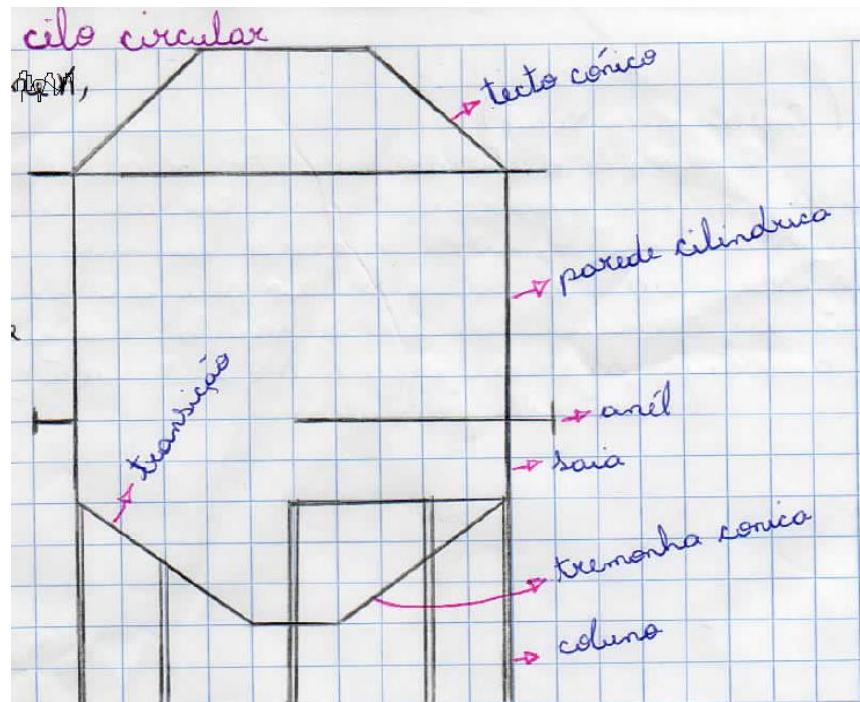 cilo circular
tecto cónico
parede cilindrica
transição
anél
saia
tremonha conica
coluna